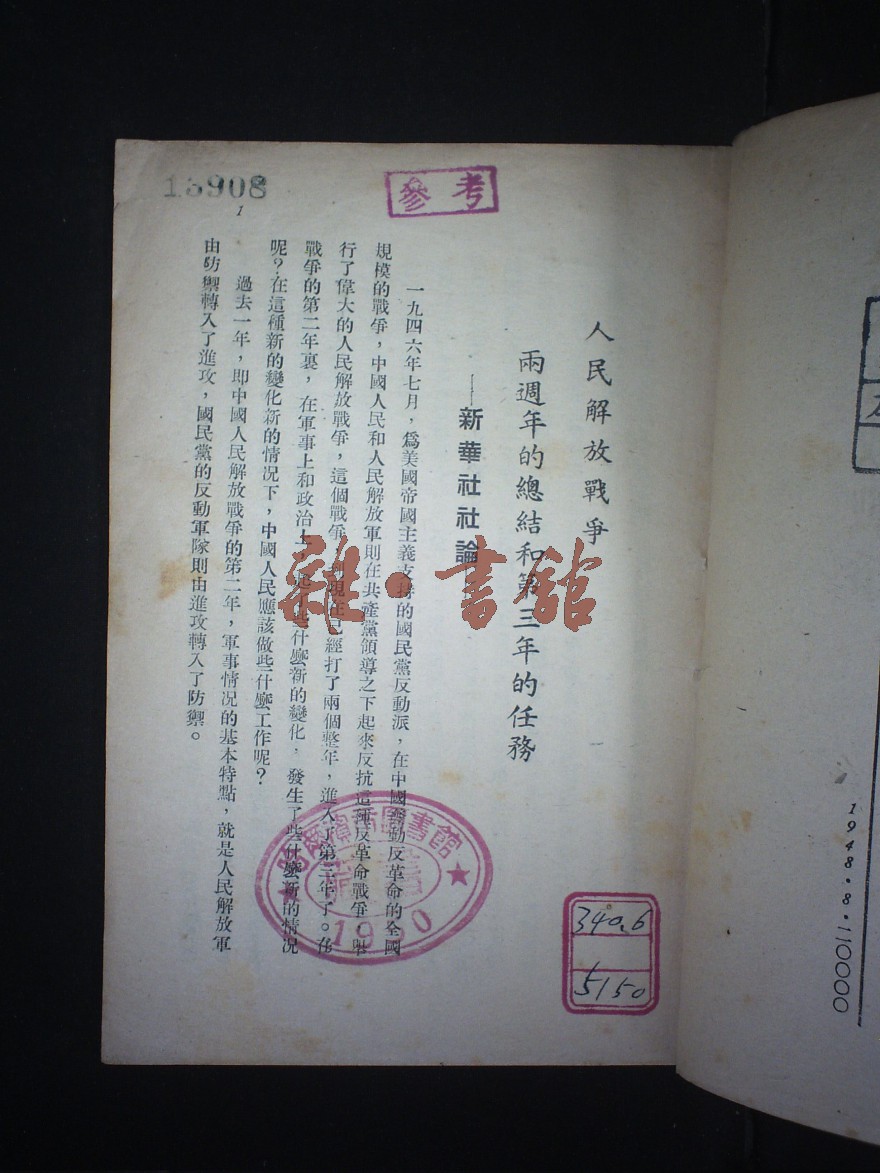 13908
1
參考
人民解放戰爭
兩週年的總結和第三年的任務
——新華社社論
一九四六年七月，爲美國帝國主義支持的國民黨反動派，在中國發動反革命的全國
規模的戰爭，中國人民和人民解放軍則在共產黨領導之下起來反抗這種反革命戰爭，
行了偉大的人民解放戰爭，這個戰爭到現在已經打了兩個整年，進入了第三年了。在
戰爭的第二年裏，在軍事上和政治上，些什麼新的變化，發生了些什麼新的情况
呢？在這種新的變化新的情况下，中國人民應該做些什麼工作呢？
過去一年，即中國人民解放戰爭的第二年，軍事情况的基本特點，就是人民解放軍
由防禦轉入了進攻，國民黨的反動軍隊則由進攻轉入了防禦。
雜·書館
圖書館
1950
340.6
5150
1948.8.110000